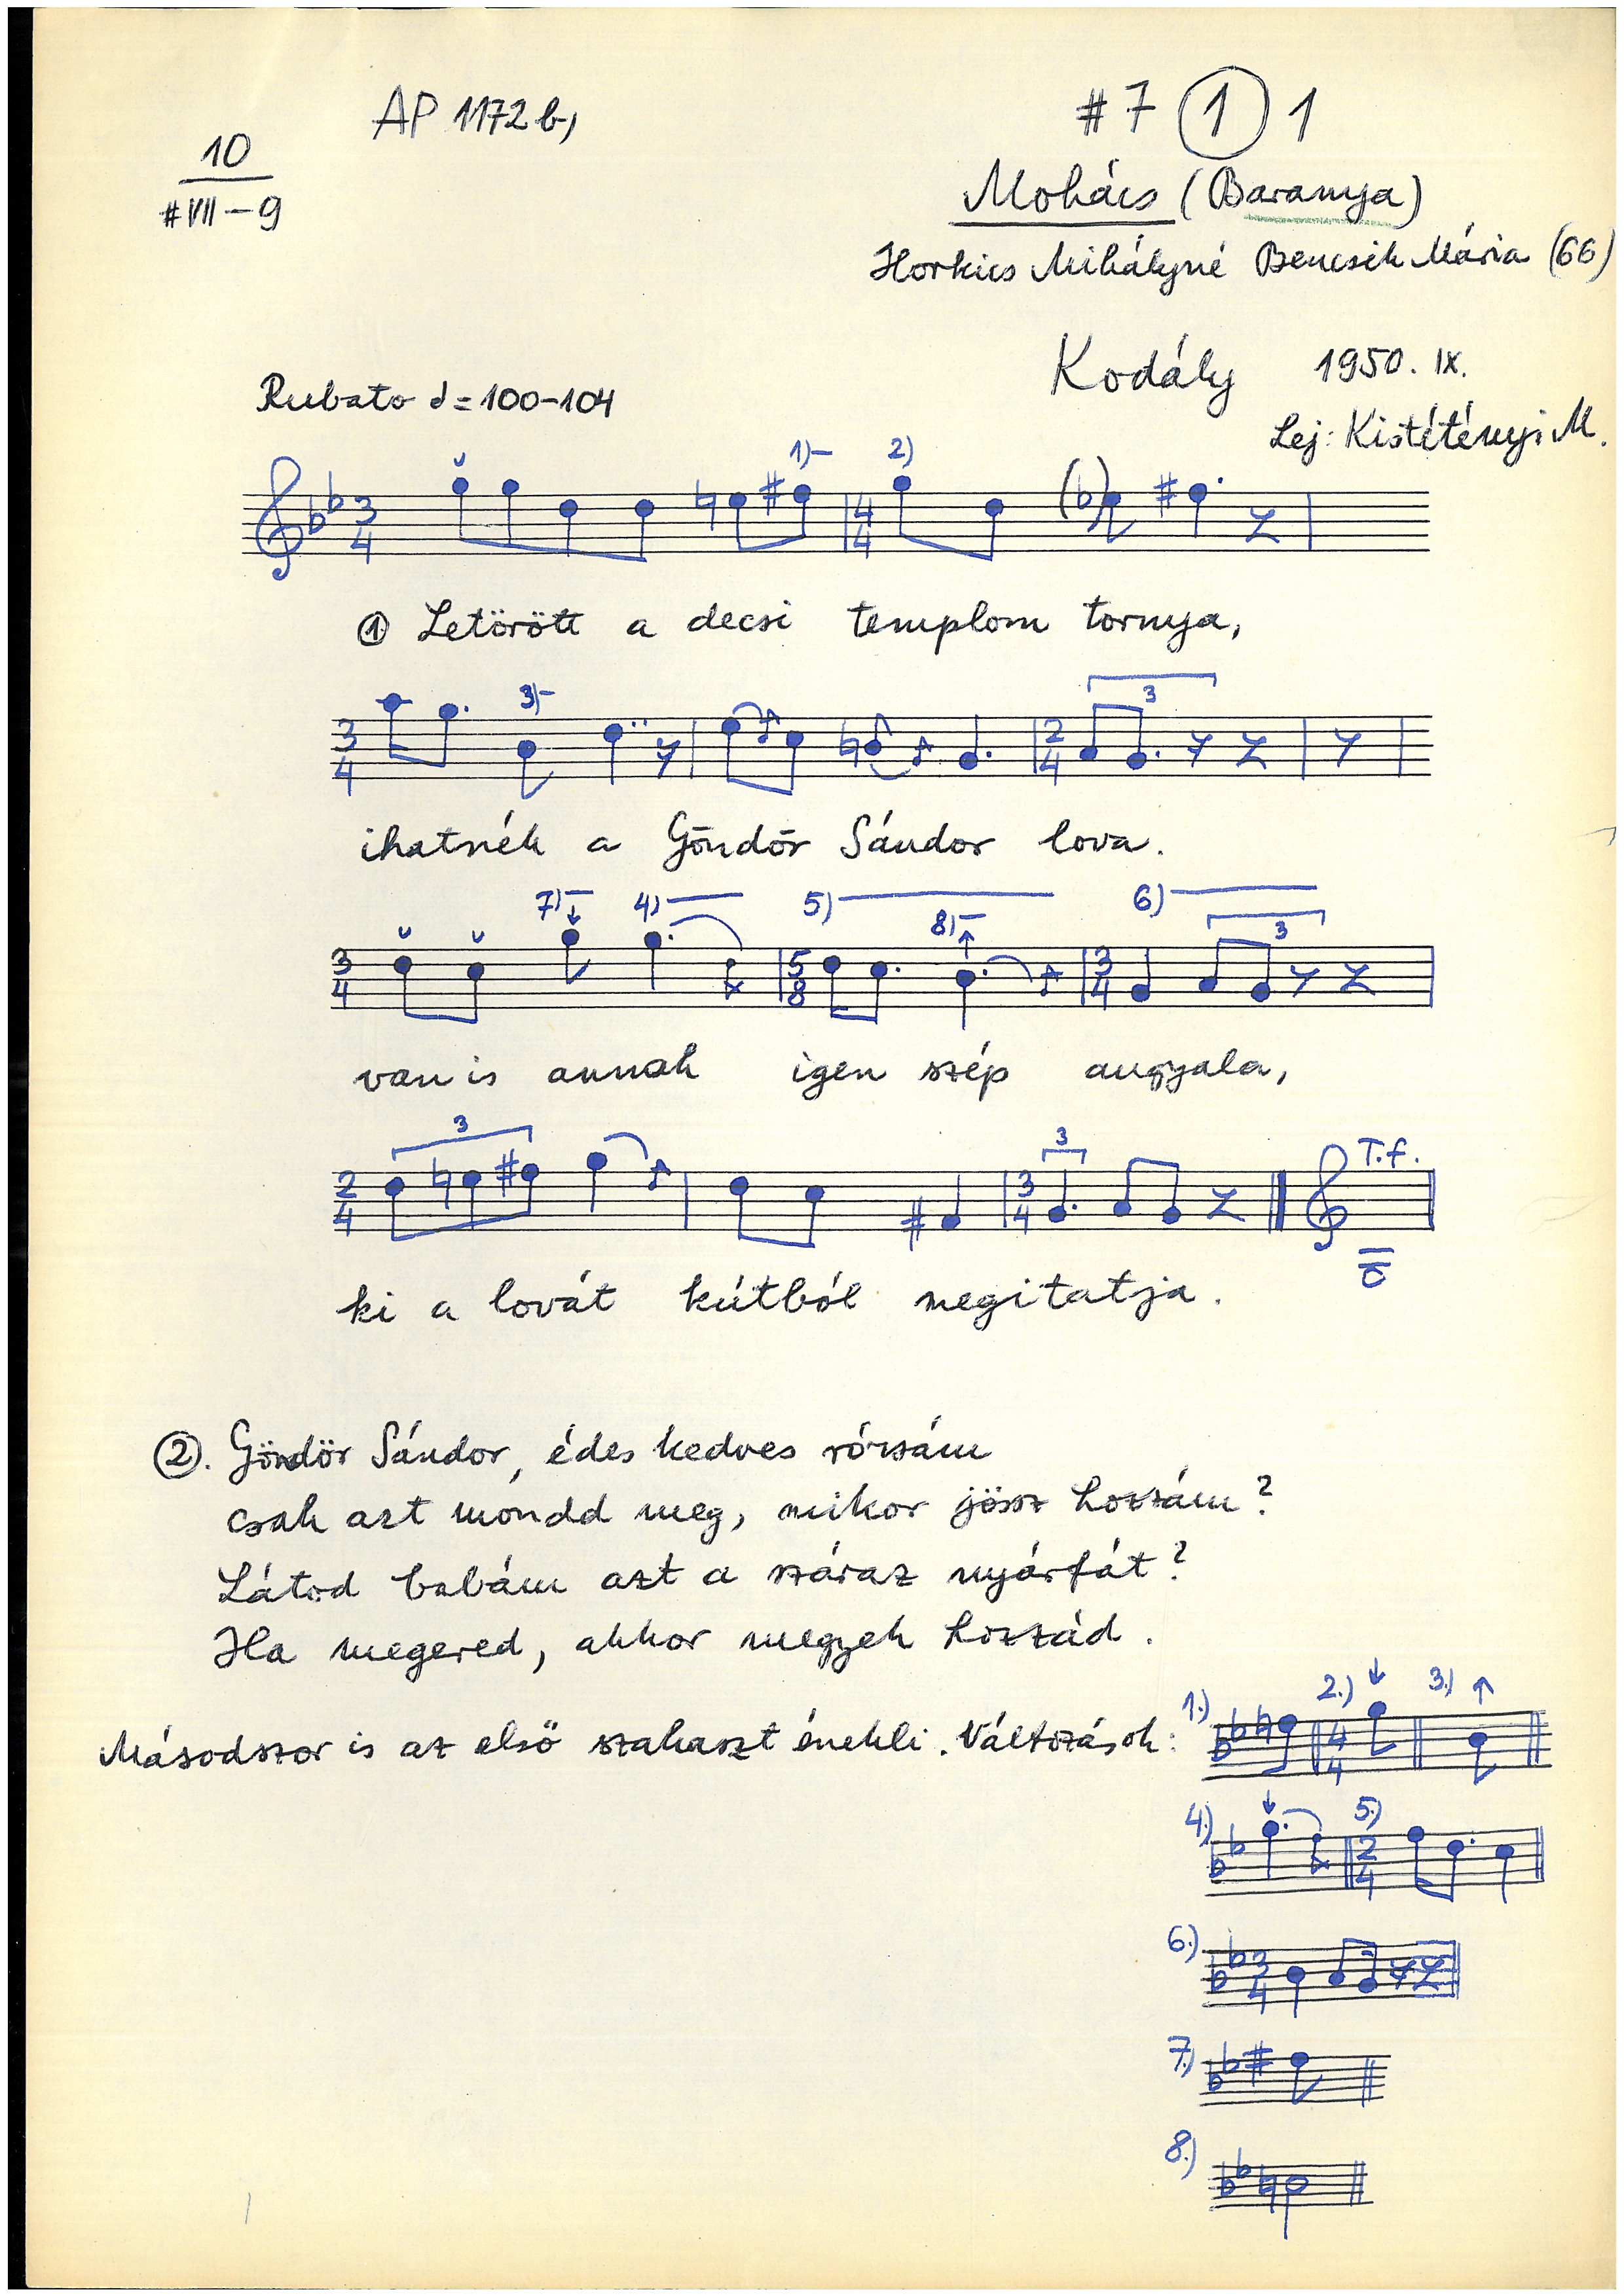 AP 1172 b,
#7 ① 1
10
#VII-9
Mohács (Baranya)
Horkics Mihályné Bencsik Mária (66)
Kodály 1950. IX.
Lej: Kistétényi M.
Rubato ♩=100-104
1)- 2)
① Letörött a decsi templom tornya,
3)- 3
ihatnék a Göndör Sándor lova.
7)- 4) 5) 8)- 6) 3
van is annak igen szép angyala,
3 3 T.f.
ki a lovát kútból megitatja.
②. Göndör Sándor, édes kedves rózsám
csak azt mondd meg, mikor jössz hozzám?
Látod babám azt a száraz nyárfát?
Ha megered, akkor megyek hozzád.
Másodszor is az első szakaszt énekli. Változások:
1.) 2.) 3.)
4.) 5.)
6.)
7.)
8.)